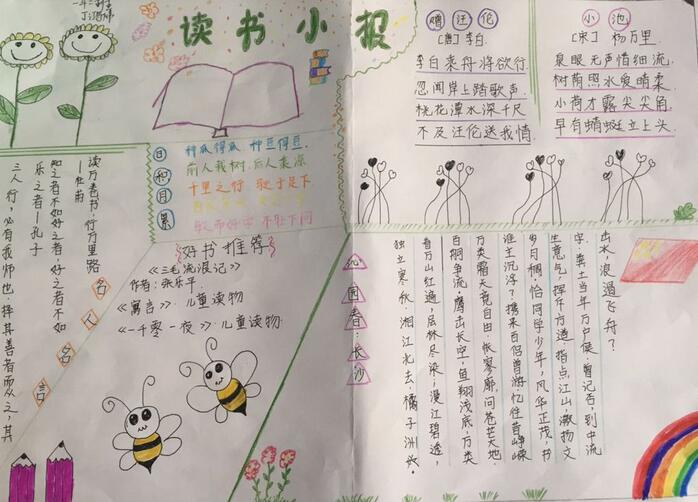 读书小报
日积月累
种瓜得瓜 种豆得豆.
前人栽树.后人乘凉
千里之行 始于足下
敏而好学 不耻下问
赠汪伦
[唐]李白.
李白乘舟将欲行.
忽闻岸上踏歌声
桃花潭水深千尺
不及汪伦送我情
小池
[宋]杨万里
泉眼无声惜细流
树荫照水爱晴柔
小荷才露尖尖角
早有蜻蜓立上头
读万卷书.行万里路
—杜甫
知之者不如好之者,好之者不如
乐之者—孔子
三人行,必有我师也.择其善者而从之,其
名人名言
好书推荐
《三毛流浪记》
作者:张乐平.
《寓言》.儿童读物
《一千零一夜》.儿童读物.
沁园春:长沙
独立寒秋 湘江北去.橘子洲头.
看万山红遍,层林尽染;漫江碧透,
百舸争流.鹰击长空,鱼翔浅底,万类
万类霜天竞自由 怅寥廓,问苍茫大地.
谁主沉浮?携来百侣曾游,忆往昔峥嵘
岁月稠.恰同学少年,风华正茂,书
生意气,挥斥方遒.指点江山,激扬文
字.粪土当年万户侯 曾记否,到中流
出水,浪遏飞舟?